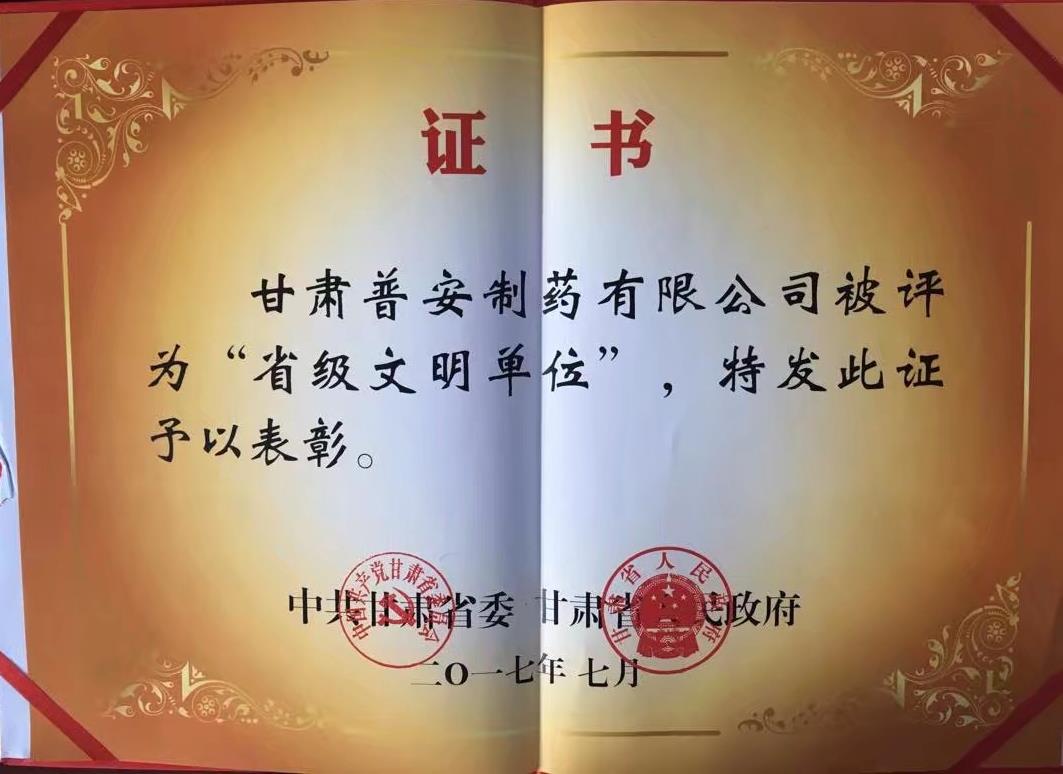 证书
甘肃普安制药有限公司被评
为“省级文明单位”，特发此证
予以表彰。
中共甘肃省委 甘肃省人民政府
二〇一七年七月
中国共产党甘肃省委员会
甘肃省人民政府